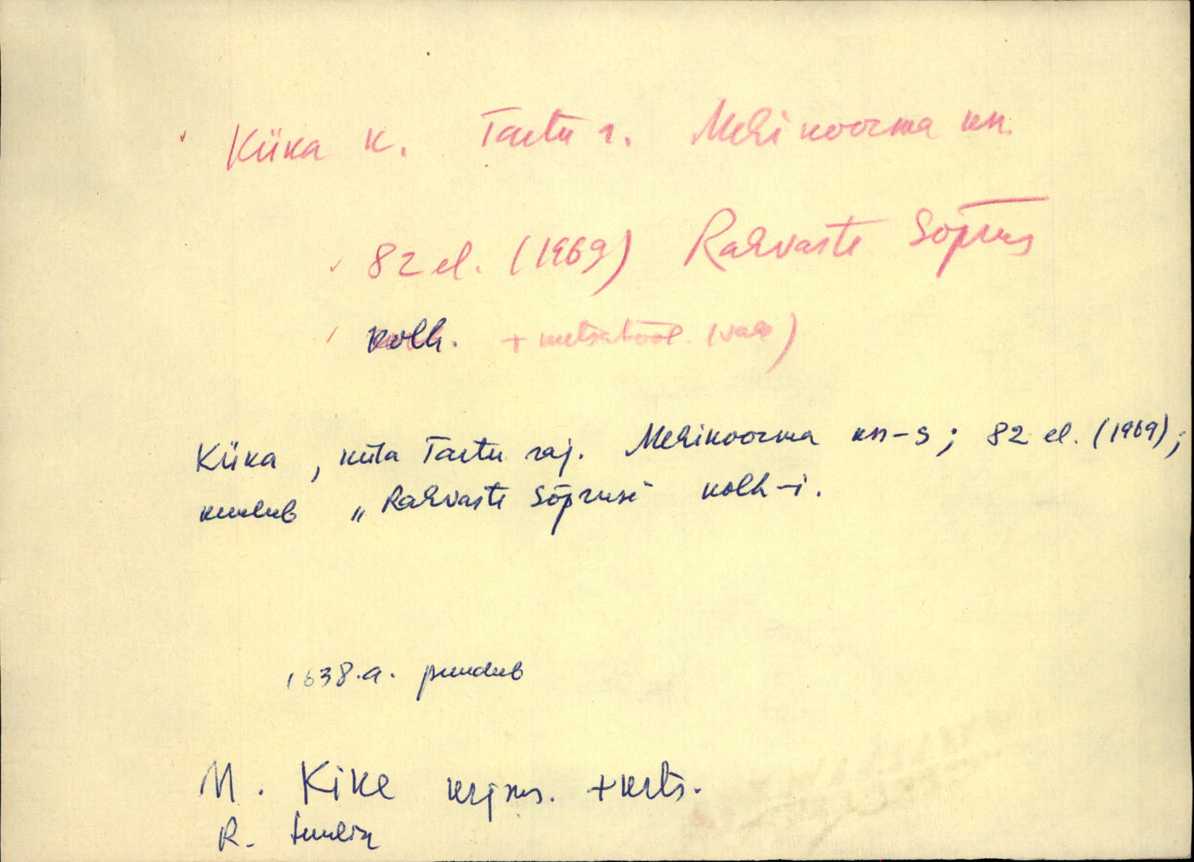 Küka k. Tartu r. Mehikoorma kn.
82 el. (1969) Rahvaste Sõprus
kolh. + metsatööl. (vah)
Küka, küla Tartu raj. Mehikoorma kn-s; 82 el. (1969);
kuulub „Rahvaste Sõpruse" kolh-i.
1638.a. puudub
M. Kike kirjan. + krts.
R.